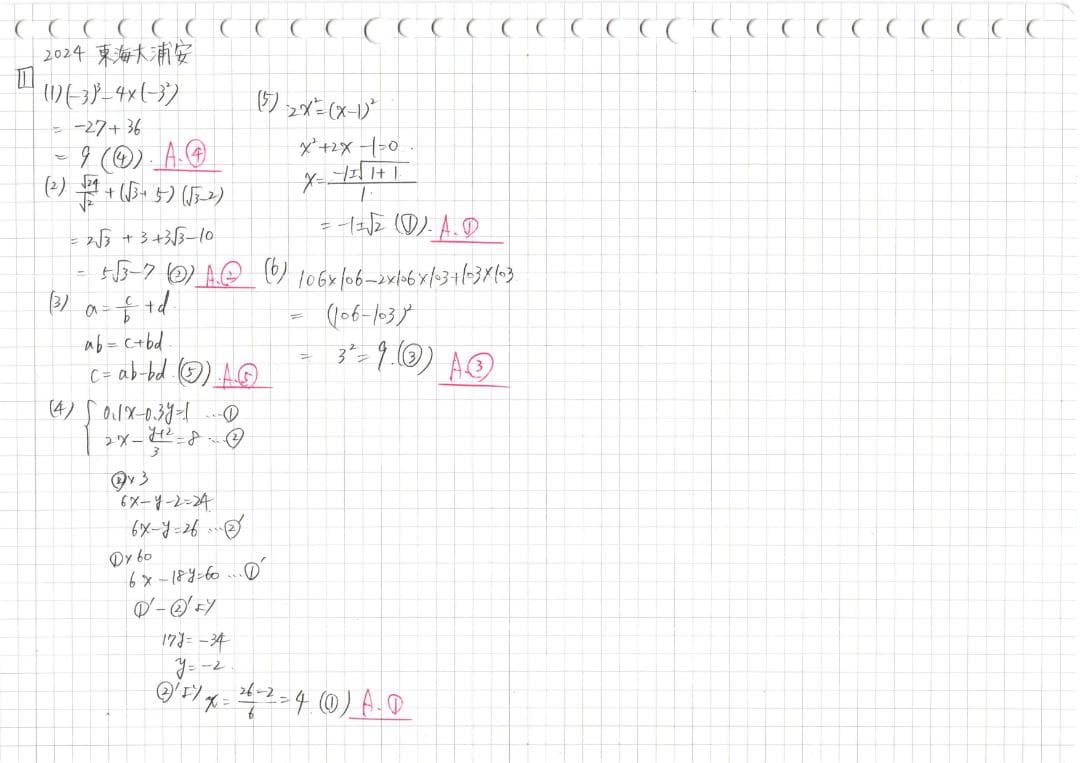 2024 東海大浦安
1
(1) (-3)³-4×(-3²)
= -27+36
= 9 (④). A.④
(2) √24/√2+(√3+5)(√3-2)
= 2√3+3+3√3-10
= 5√3-7 (②) A.②
(3) a=c/b+d.
ab=c+bd.
c=ab-bd.(⑤) A.⑤
(4) { 0.1x-0.3y=1 …①
2x-(y+2)/3=8 …②
②×3
6x-y-2=24
6x-y=26 …②'
①×60
6x-18y=60 …①'
①'-②'より
17y=-34
y=-2.
②'より x=(26-2)/6=4.(①) A.①
(5) 2x²=(x-1)²
x²+2x-1=0.
x=(-1±√(1+1))/1.
=-1±√2 (①). A.①
(6) 106×106-2×106×103+103×103
= (106-103)²
= 3²=9.(③) A.③